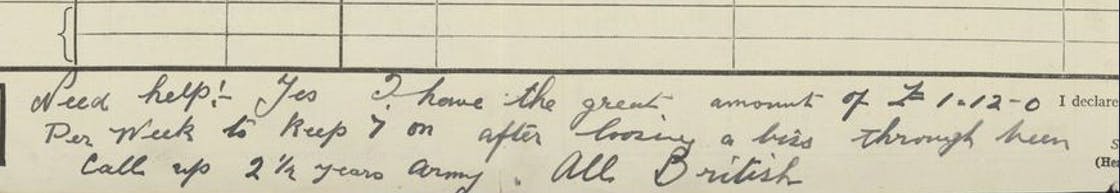 Need help!- Yes I have the great amount of £ 1-12-0 I declare
Per Week to Keep 7 on after loosing a biss through been
Call up 2½ years army. All British
S
(He